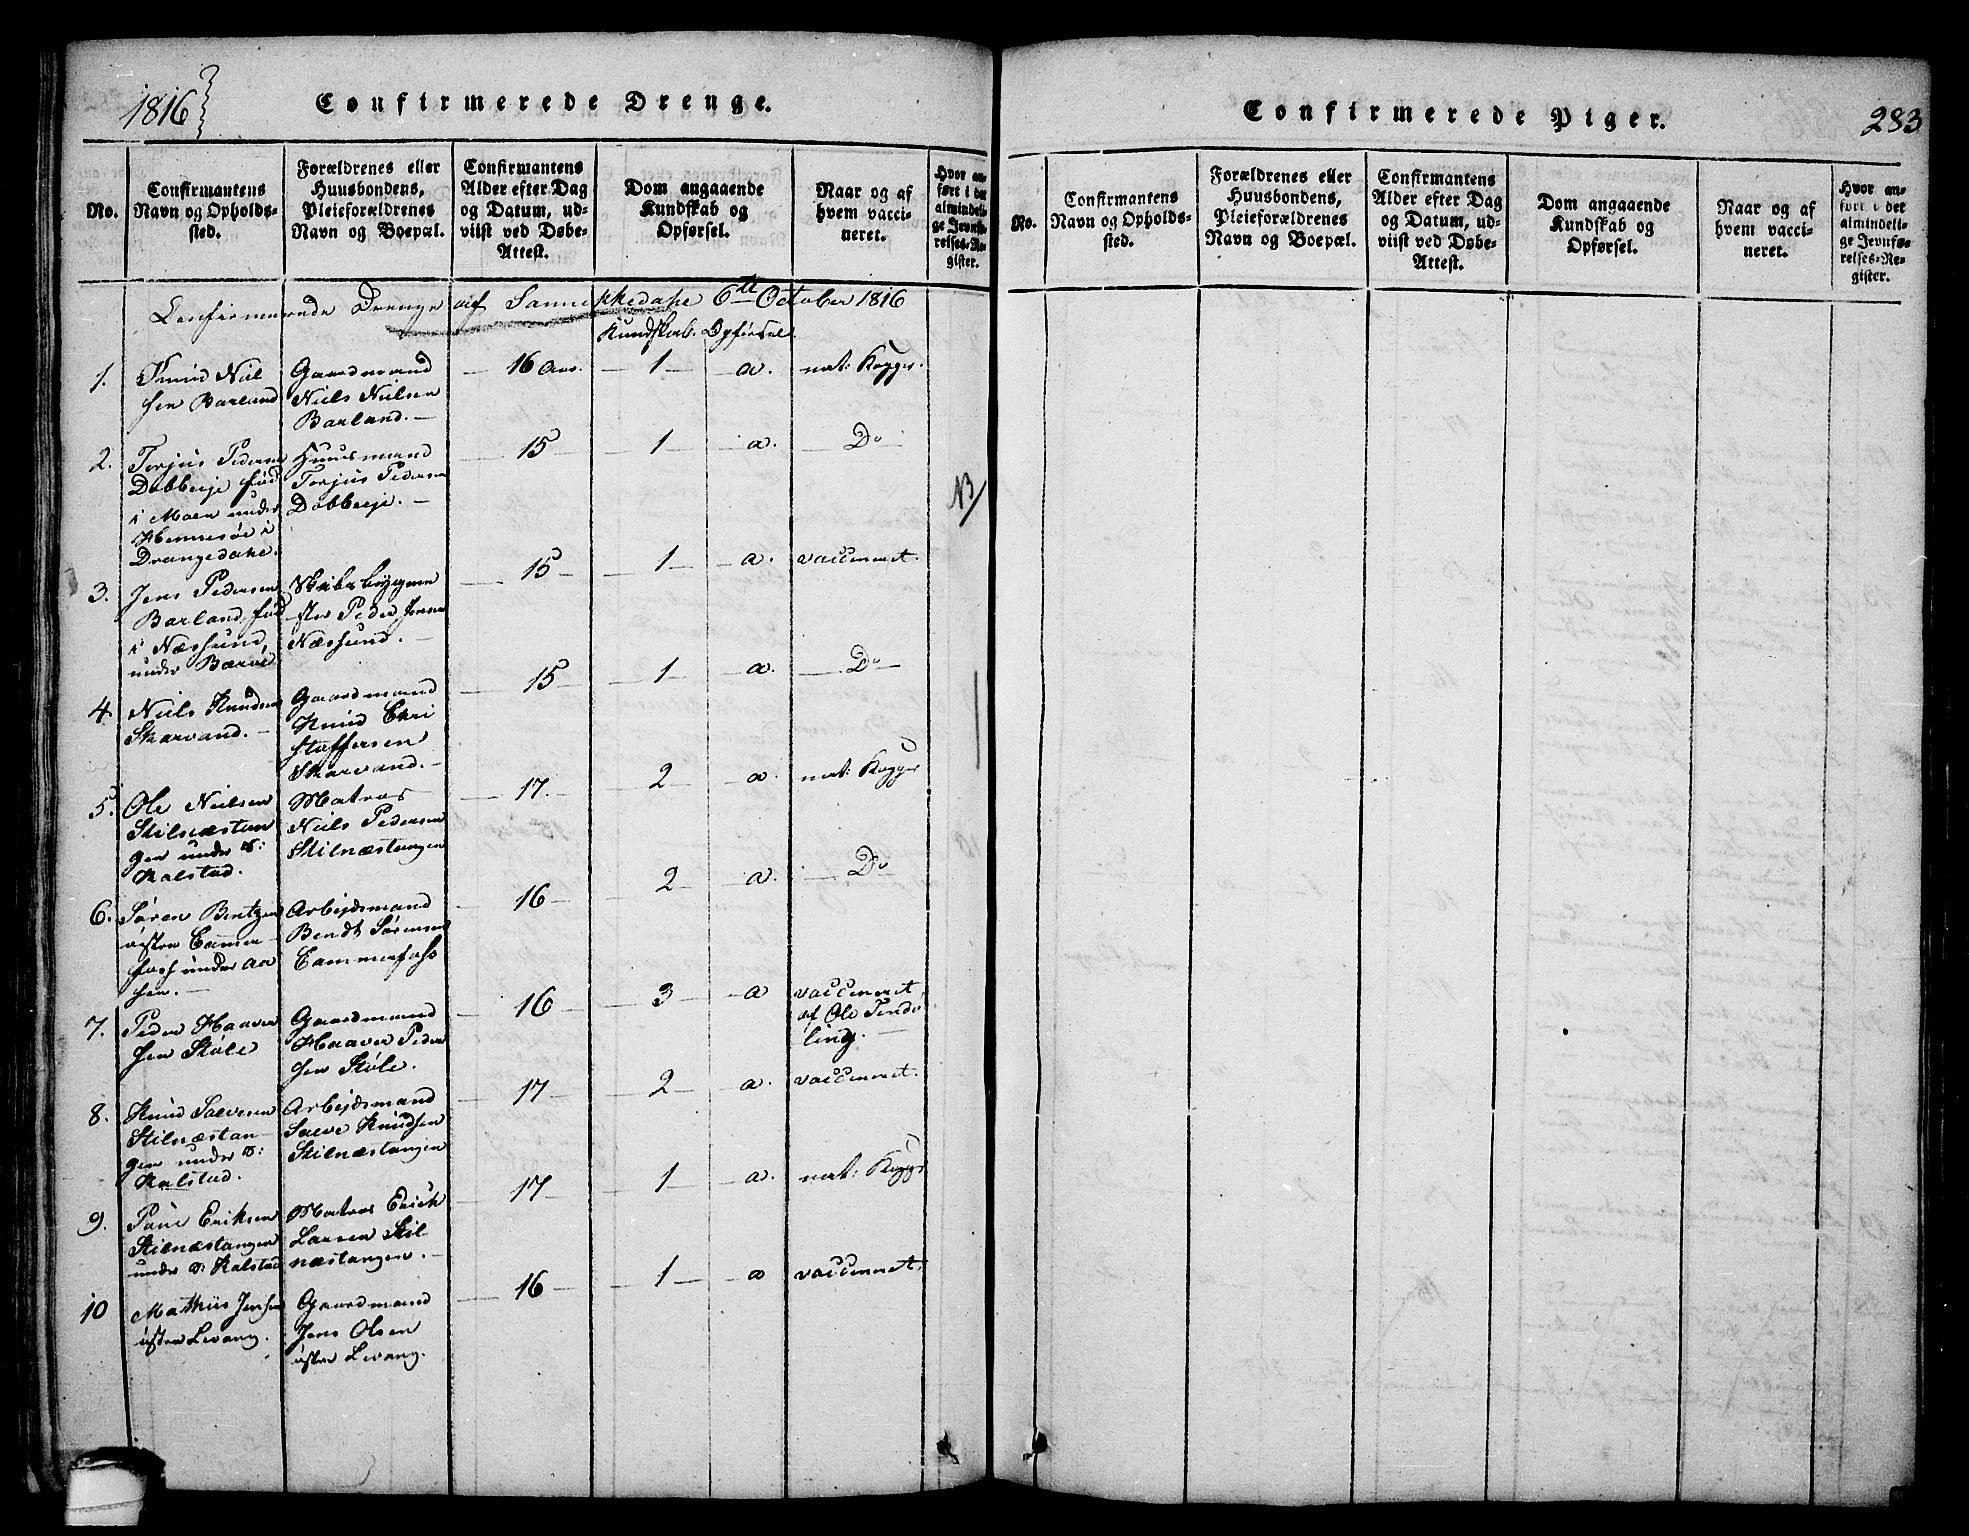 1816
Confirmerede Drenge.
No.
Confirmantens
Navn og Opholds-
sted.
Forældrenes eller
Huusbondens,
Pleieforældrenes
Navn og Boepæl.
Confirmantens
Alder efter Dag
og Datum, ud-
viist ved Døbe-
Attest.
Dom angaaende
Kundskab og
Opførsel.
Naar og af
hvem vacci-
neret.
Hvor an-
ført i det
almindeli-
ge Jevnfø-
relses-Re-
gister.
Confirmerede Drenge af Sannikkedahl 6te October 1816
Kundskab. Opførsel.
1.
Knud Niel
sen Barland
Gaardmand
Niels Nielsen
Barland.
16 Aar.
1
a.
nat: Kopper.
2.
Torjus Pedersen
Dobbeije fød
i Moen under
Hennesøe i
Drangedahl.
Huusmand
Torjus Pedersen
Dobbeije.
15
1
a.
Do
NB
3.
Jens Pedersen
Barland, fød
i Næssund,
under Barve
Skibsbygme
ster Peder Jensen
Næssund.
15
1
a.
vaccineret.
4.
Niels Knudsen
Skarvand.
Gaardmand
Knud Chri
stoffersen
Skarvand.
15
1
a.
Do
5.
Ole Nielsen
Stilnæstan
gen under
Kalstad.
Matros
Niels Pedersen
Stilnæstangen
17.
2
a.
nat: Kopper
6.
Søren Bentzen
østre Cammer
foss under Aa
sen.
Arbejdsmand
Bendt Sørensen
Cammerfoss
16
2
a.
Do
7.
Peder Haaver
sen Støle
Gaardmand
Haaver Peder
sen Støle.
16
3
a
vaccineret
af Ole Tendø
ling.
8.
Knud Salvesen
Stilnæstan
gen under
Kalstad.
Arbejdsmand
Salve Knudsen
Stilnæstangen
17
2
a.
vaccineret.
9.
Poul Eriksen
Stilnæstangen
under Kalstad
Matros Erick
Larsen Stil
næstangen.
17
1
a.
nat: Kopper
10
Mathiis Jensen
østre Levang.
Gaardmand
Jens Olsen
østre Levang.
16
1
a
vaccineret.
Confirmerede Piger.
283
No.
Confirmantens
Navn og Opholds-
sted.
Forældrenes eller
Huusbondens,
Pleieforældrenes
Navn og Boepæl.
Confirmantens
Alder efter Dag
og Datum, ud-
viist ved Døbe-
Attest.
Dom angaaende
Kundskab og
Opførsel.
Naar og af
hvem vacci-
neret.
Hvor an-
ført i det
almindeli-
ge Jevnfø-
relses-Re-
gister.